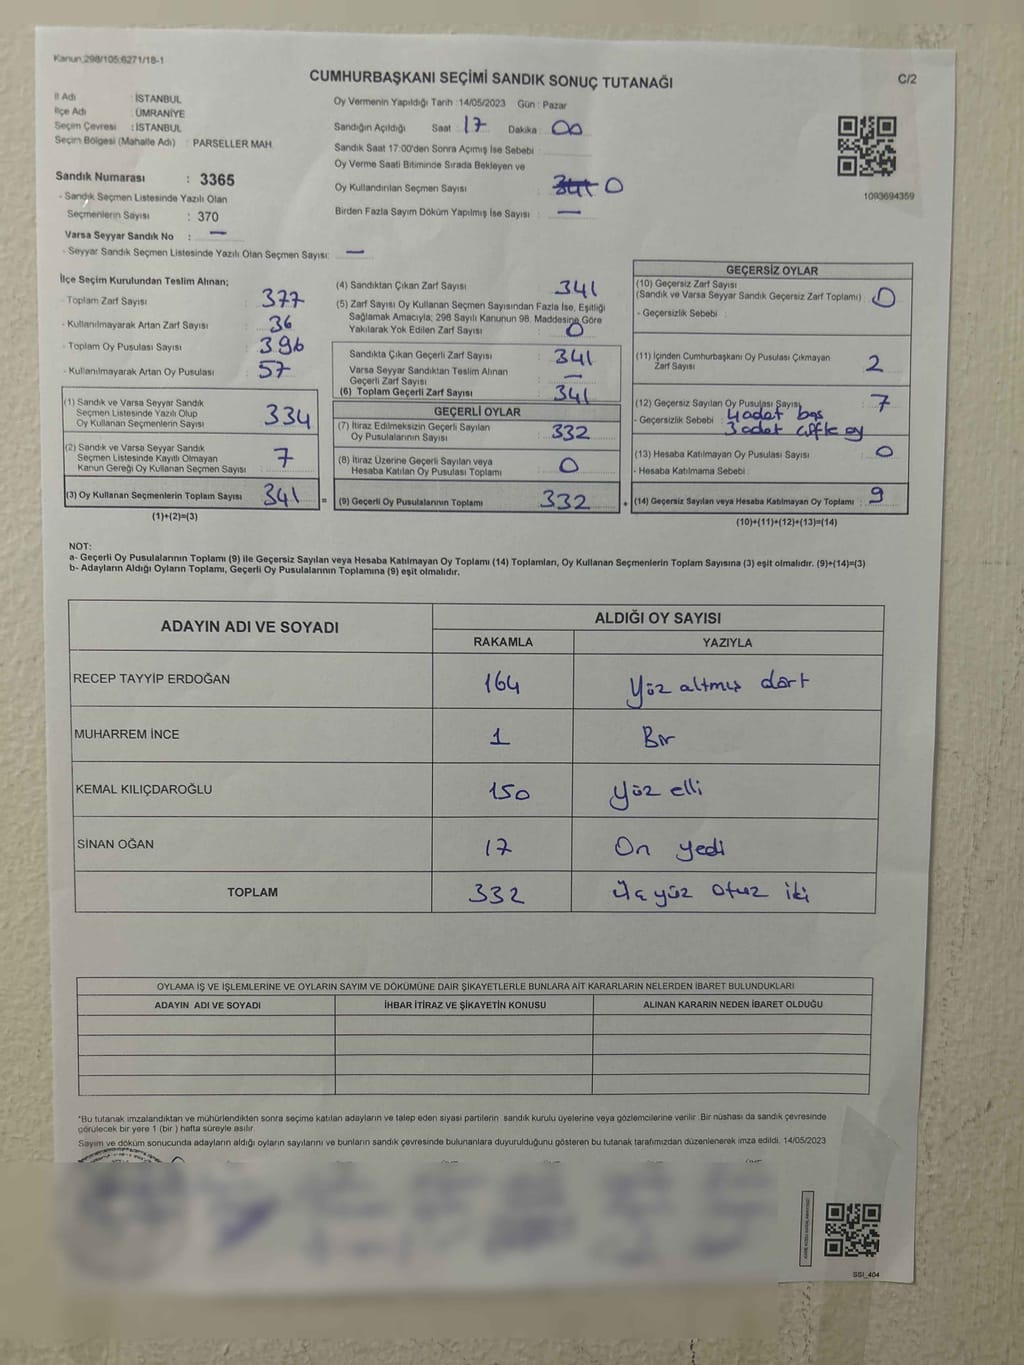 Kanun 298/105;6271/18-1
CUMHURBAŞKANI SEÇİMİ SANDIK SONUÇ TUTANAĞI
C/2
İl Adı : İSTANBUL
İlçe Adı : ÜMRANİYE
Seçim Çevresi : İSTANBUL
Seçim Bölgesi (Mahalle Adı) : PARSELLER MAH.
Sandık Numarası : 3365
- Sandık Seçmen Listesinde Yazılı Olan
Seçmenlerin Sayısı : 370
Varsa Seyyar Sandık No : —
- Seyyar Sandık Seçmen Listesinde Yazılı Olan Seçmen Sayısı: —
Oy Vermenin Yapıldığı Tarih :14/05/2023 Gün : Pazar
Sandığın Açıldığı Saat : 17 Dakika : 00
Sandık Saat 17:00'den Sonra Açımış İse Sebebi :
Oy Verme Saati Bitiminde Sırada Bekleyen ve
Oy Kullandırılan Seçmen Sayısı : 341 0
Birden Fazla Sayım Döküm Yapılmış İse Sayısı : —
1093694359
İlçe Seçim Kurulundan Teslim Alınan;
- Toplam Zarf Sayısı : 377
- Kullanılmayarak Artan Zarf Sayısı : 36
- Toplam Oy Pusulası Sayısı : 396
- Kullanılmayarak Artan Oy Pusulası : 57
(1) Sandık ve Varsa Seyyar Sandık
Seçmen Listesinde Yazılı Olup
Oy Kullanan Seçmenlerin Sayısı : 334
(2) Sandık ve Varsa Seyyar Sandık
Seçmen Listesinde Kayıtlı Olmayan
Kanun Gereği Oy Kullanan Seçmen Sayısı : 7
(3) Oy Kullanan Seçmenlerin Toplam Sayısı : 341
(1)+(2)=(3)
=
(4) Sandıktan Çıkan Zarf Sayısı : 341
(5) Zarf Sayısı Oy Kullanan Seçmen Sayısından Fazla İse, Eşitliği
Sağlamak Amacıyla; 298 Sayılı Kanunun 98. Maddesine Göre
Yakılarak Yok Edilen Zarf Sayısı : 0
Sandıkta Çıkan Geçerli Zarf Sayısı : 341
Varsa Seyyar Sandıktan Teslim Alınan
Geçerli Zarf Sayısı : —
(6) Toplam Geçerli Zarf Sayısı : 341
GEÇERLİ OYLAR
(7) İtiraz Edilmeksizin Geçerli Sayılan
Oy Pusulalarının Sayısı : 332
(8) İtiraz Üzerine Geçerli Sayılan veya
Hesaba Katılan Oy Pusulası Toplamı : 0
(9) Geçerli Oy Pusulalarının Toplamı : 332
+
GEÇERSİZ OYLAR
(10) Geçersiz Zarf Sayısı
(Sandık ve Varsa Seyyar Sandık Geçersiz Zarf Toplamı) : 0
- Geçersizlik Sebebi :
(11) İçinden Cumhurbaşkanı Oy Pusulası Çıkmayan
Zarf Sayısı : 2
(12) Geçersiz Sayılan Oy Pusulası Sayısı : 7
- Geçersizlik Sebebi : 4 adet boş
3 adet çift oy
(13) Hesaba Katılmayan Oy Pusulası Sayısı : 0
- Hesaba Katılmama Sebebi :
(14) Geçersiz Sayılan veya Hesaba Katılmayan Oy Toplamı : 9
(10)+(11)+(12)+(13)=(14)
NOT:
a- Geçerli Oy Pusulalarının Toplamı (9) ile Geçersiz Sayılan veya Hesaba Katılmayan Oy Toplamı (14) Toplamları, Oy Kullanan Seçmenlerin Toplam Sayısına (3) eşit olmalıdır. (9)+(14)=(3)
b- Adayların Aldığı Oyların Toplamı, Geçerli Oy Pusulalarının Toplamına (9) eşit olmalıdır.
ADAYIN ADI VE SOYADI
ALDIĞI OY SAYISI
RAKAMLA YAZIYLA
RECEP TAYYİP ERDOĞAN 164 Yüz altmış dört
MUHARREM İNCE 1 Bir
KEMAL KILIÇDAROĞLU 150 Yüz elli
SİNAN OĞAN 17 On yedi
TOPLAM 332 üç yüz otuz iki
OYLAMA İŞ VE İŞLEMLERİNE VE OYLARIN SAYIM VE DÖKÜMÜNE DAİR ŞİKAYETLERLE BUNLARA AİT KARARLARIN NELERDEN İBARET BULUNDUKLARI
ADAYIN ADI VE SOYADI İHBAR İTİRAZ VE ŞİKAYETİN KONUSU ALINAN KARARIN NEDEN İBARET OLDUĞU
*Bu tutanak imzalandıktan ve mühürlendikten sonra seçime katılan adayların ve talep eden siyasi partilerin sandık kurulu üyelerine veya gözlemcilerine verilir .Bir nüshası da sandık çevresinde
görülecek bir yere 1 (bir ) hafta süreyle asılır.
Sayım ve döküm sonucunda adayların aldığı oyların sayılarını ve bunların sandık çevresinde bulunanlara duyurulduğunu gösteren bu tutanak tarafımızdan düzenlenerek imza edildi. 14/05/2023
SSI_404